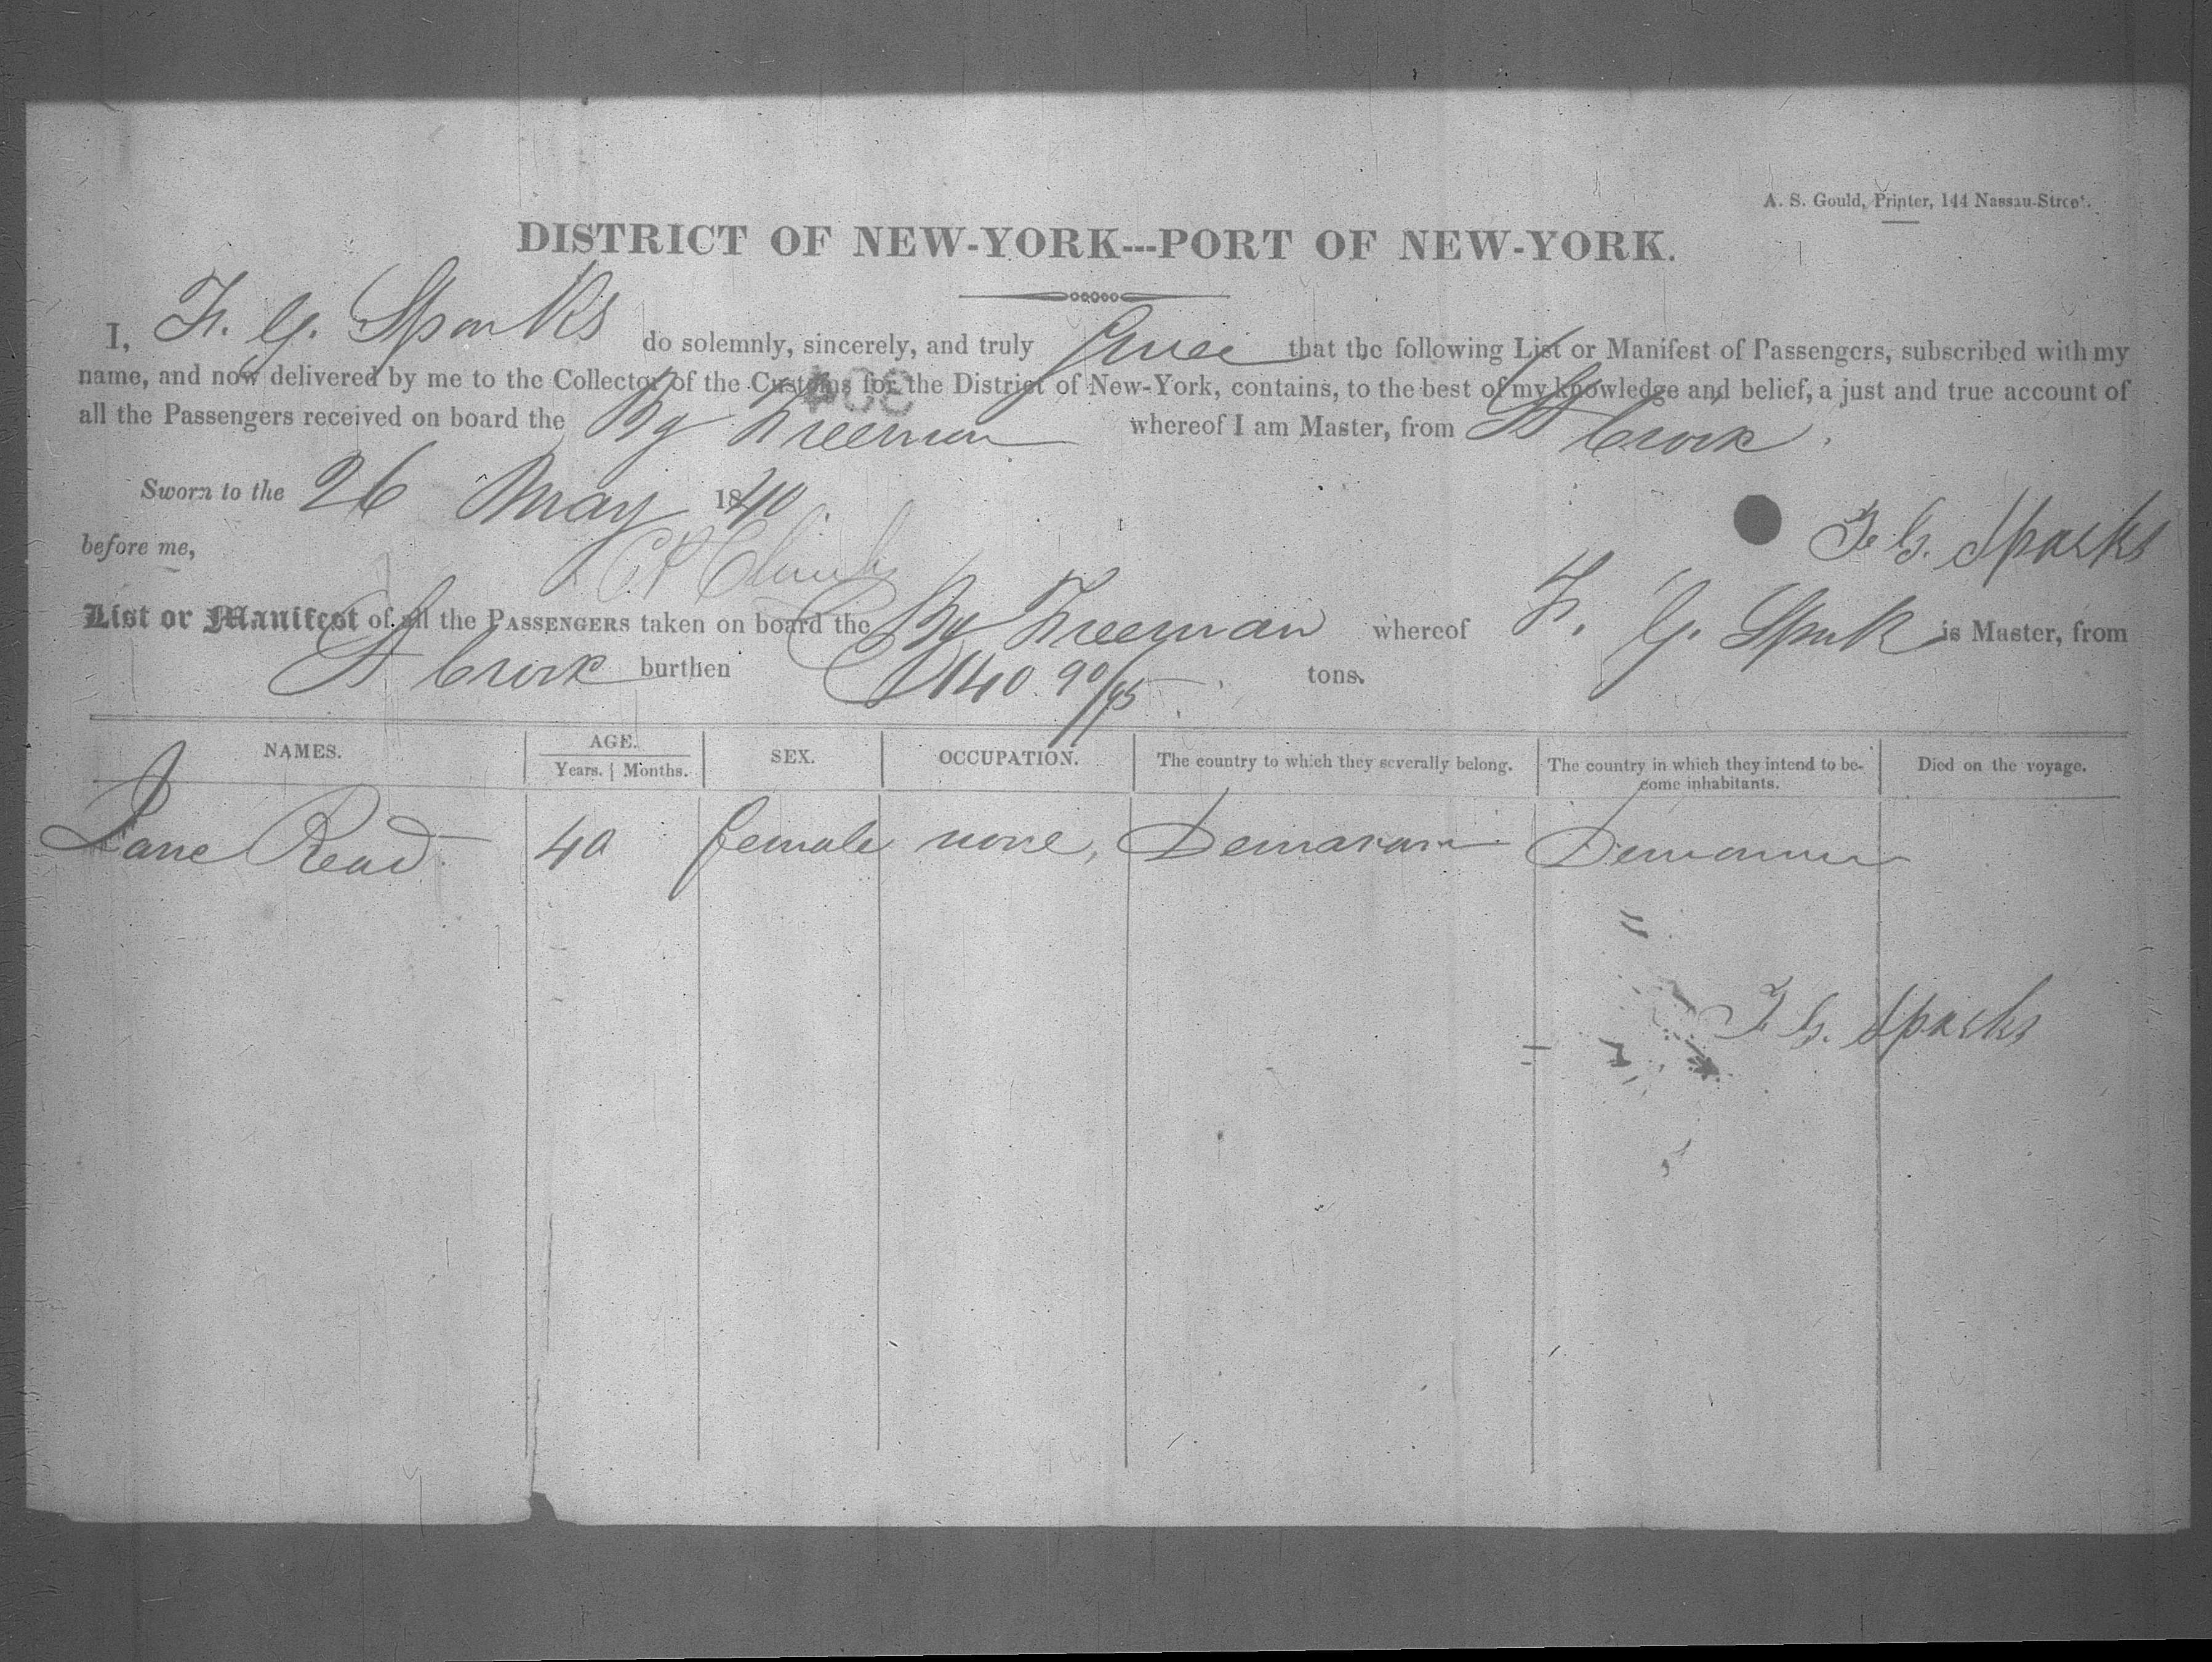 A. S. Gould, Printer, 144 Nassau-Street.
DISTRICT OF NEW-YORK---PORT OF NEW-YORK.
I, F. G. Sparks do solemnly, sincerely, and truly that the following List or Manifest of Passengers, subscribed with my
name, and now delivered by me to the Collector of the Customs for the District of New-York, contains, to the best of my knowledge and belief, a just and true account of
304
all the Passengers received on board the Bg Freeman whereof I am Master, from St Croix.
Sworn to the 26 May 1840.
F. G. Sparks
before me,
List or Manifest of all the PASSENGERS taken on board the Bg Freeman whereof F. G. Spark is Master, from
St Croix burthen 140 90/95 tons.
NAMES. AGE. SEX. OCCUPATION. The country to which they severally belong. The country in which they intend to be- Died on the voyage.
Years. Months. come inhabitants.
Jane Read 40 female none,
F. G. Sparks